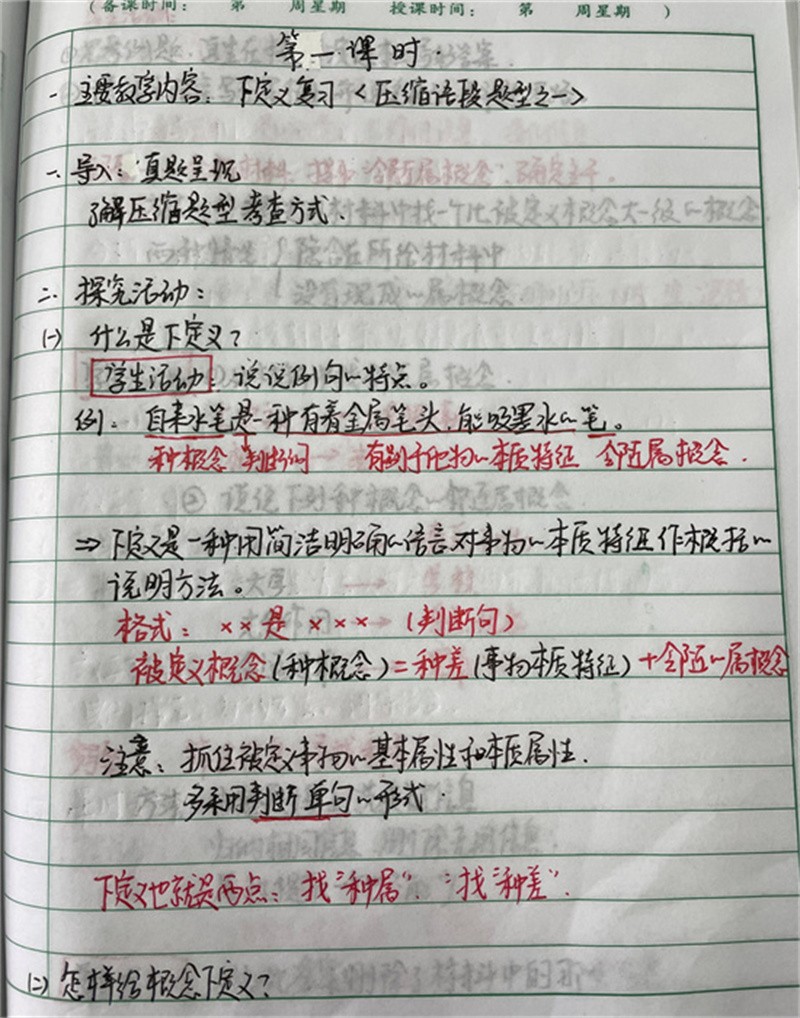 （备课时间：　第　周星期　授课时间：　第　周星期　）
第一课时.
一主要教学内容：下定义复习〈压缩语段题型之一〉
一、导入：真题呈现
了解压缩题型考查方式.
二、探究活动：
(一) 什么是下定义？
学生活动：说说例句的特点。
例：自来水笔是一种有着金属笔头,能吸墨水的笔。
种概念 判断词 有别于他物的本质特征 邻近属概念.
⇒下定义是一种用简洁明确的语言对事物的本质特征作概括的
说明方法。
格式：××是×××（判断句）
被定义概念(种概念)=种差(事物本质特征)+邻近的属概念
注意：抓住被定义事物的基本属性和本质属性.
多采用判断单句的形式.
下定义也就是两点：找“种属”、找“种差”.
(二) 怎样给概念下定义？